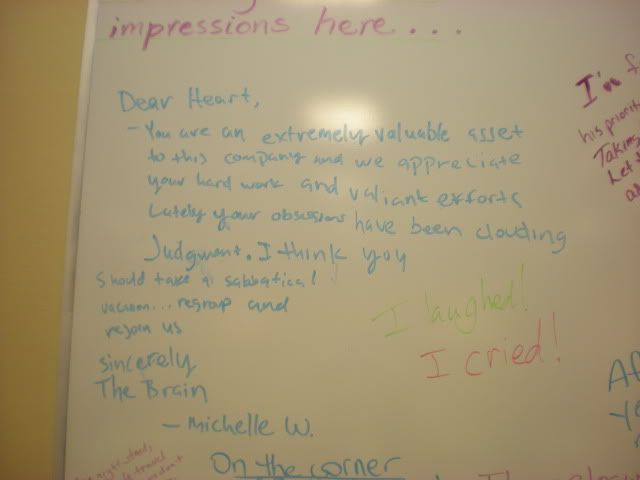 impressions here...
Dear Heart,
- You are an extremely valuable asset
to this company and we appreciate
your hard work and valiant efforts
Lately your obsessions have been clouding
Judgment. I think you
should take a sabbatical!
vacuum... regroup and
rejoin us
sincerely
The Brain
- Michelle W.
I laughed!
I cried!
On the corner
I'm f
his priorit
Taking
Let t
al
Af
ye